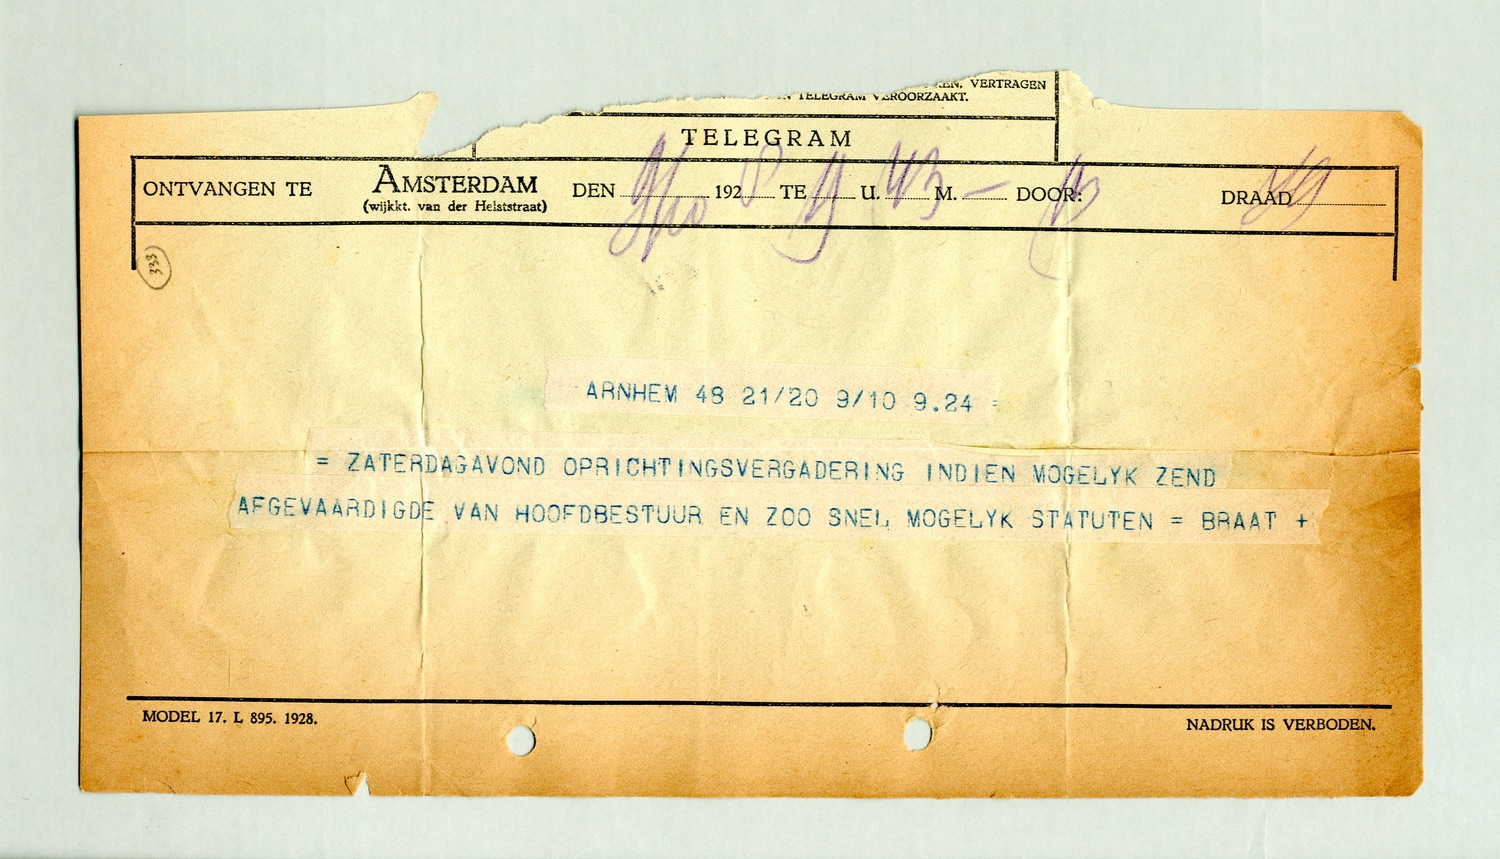 VERTRAGEN
TELEGRAM VEROORZAAKT.
TELEGRAM
ONTVANGEN TE AMSTERDAM DEN 9/10 1928 TE 9 U. 43 M. — DOOR: DRAAD
(wijkkt. van der Helststraat)
333
ARNHEM 48 21/20 9/10 9.24 =
= ZATERDAGAVOND OPRICHTINGSVERGADERING INDIEN MOGELYK ZEND
AFGEVAARDIGDE VAN HOOFDBESTUUR EN ZOO SNEL MOGELYK STATUTEN = BRAAT +
MODEL 17. L 895. 1928.
NADRUK IS VERBODEN.